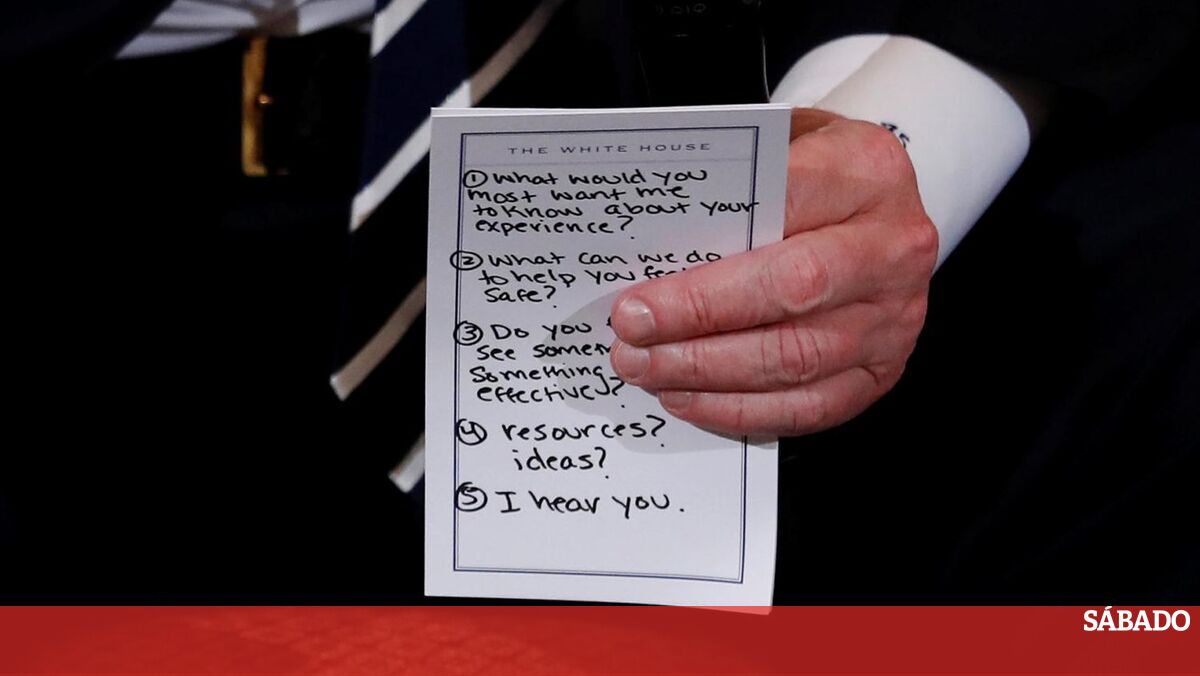 THE WHITE HOUSE
① What would you
most want me
to know about your
experience?
② What can we do
to help you
safe?
③ Do you
see
something
effective?
④ resources?
ideas?
⑤ I hear you.
45
SÁBADO